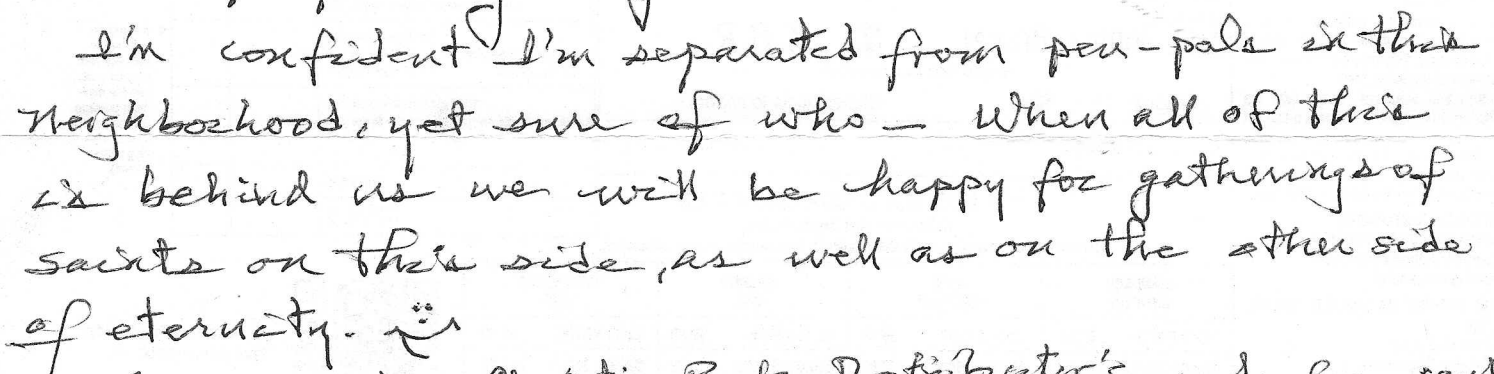 I'm confident I'm separated from pen-pals in this
neighborhood, yet sure of who — When all of this
is behind us we will be happy for gatherings of
saints on this side, as well as on the other side
of eternity. :)